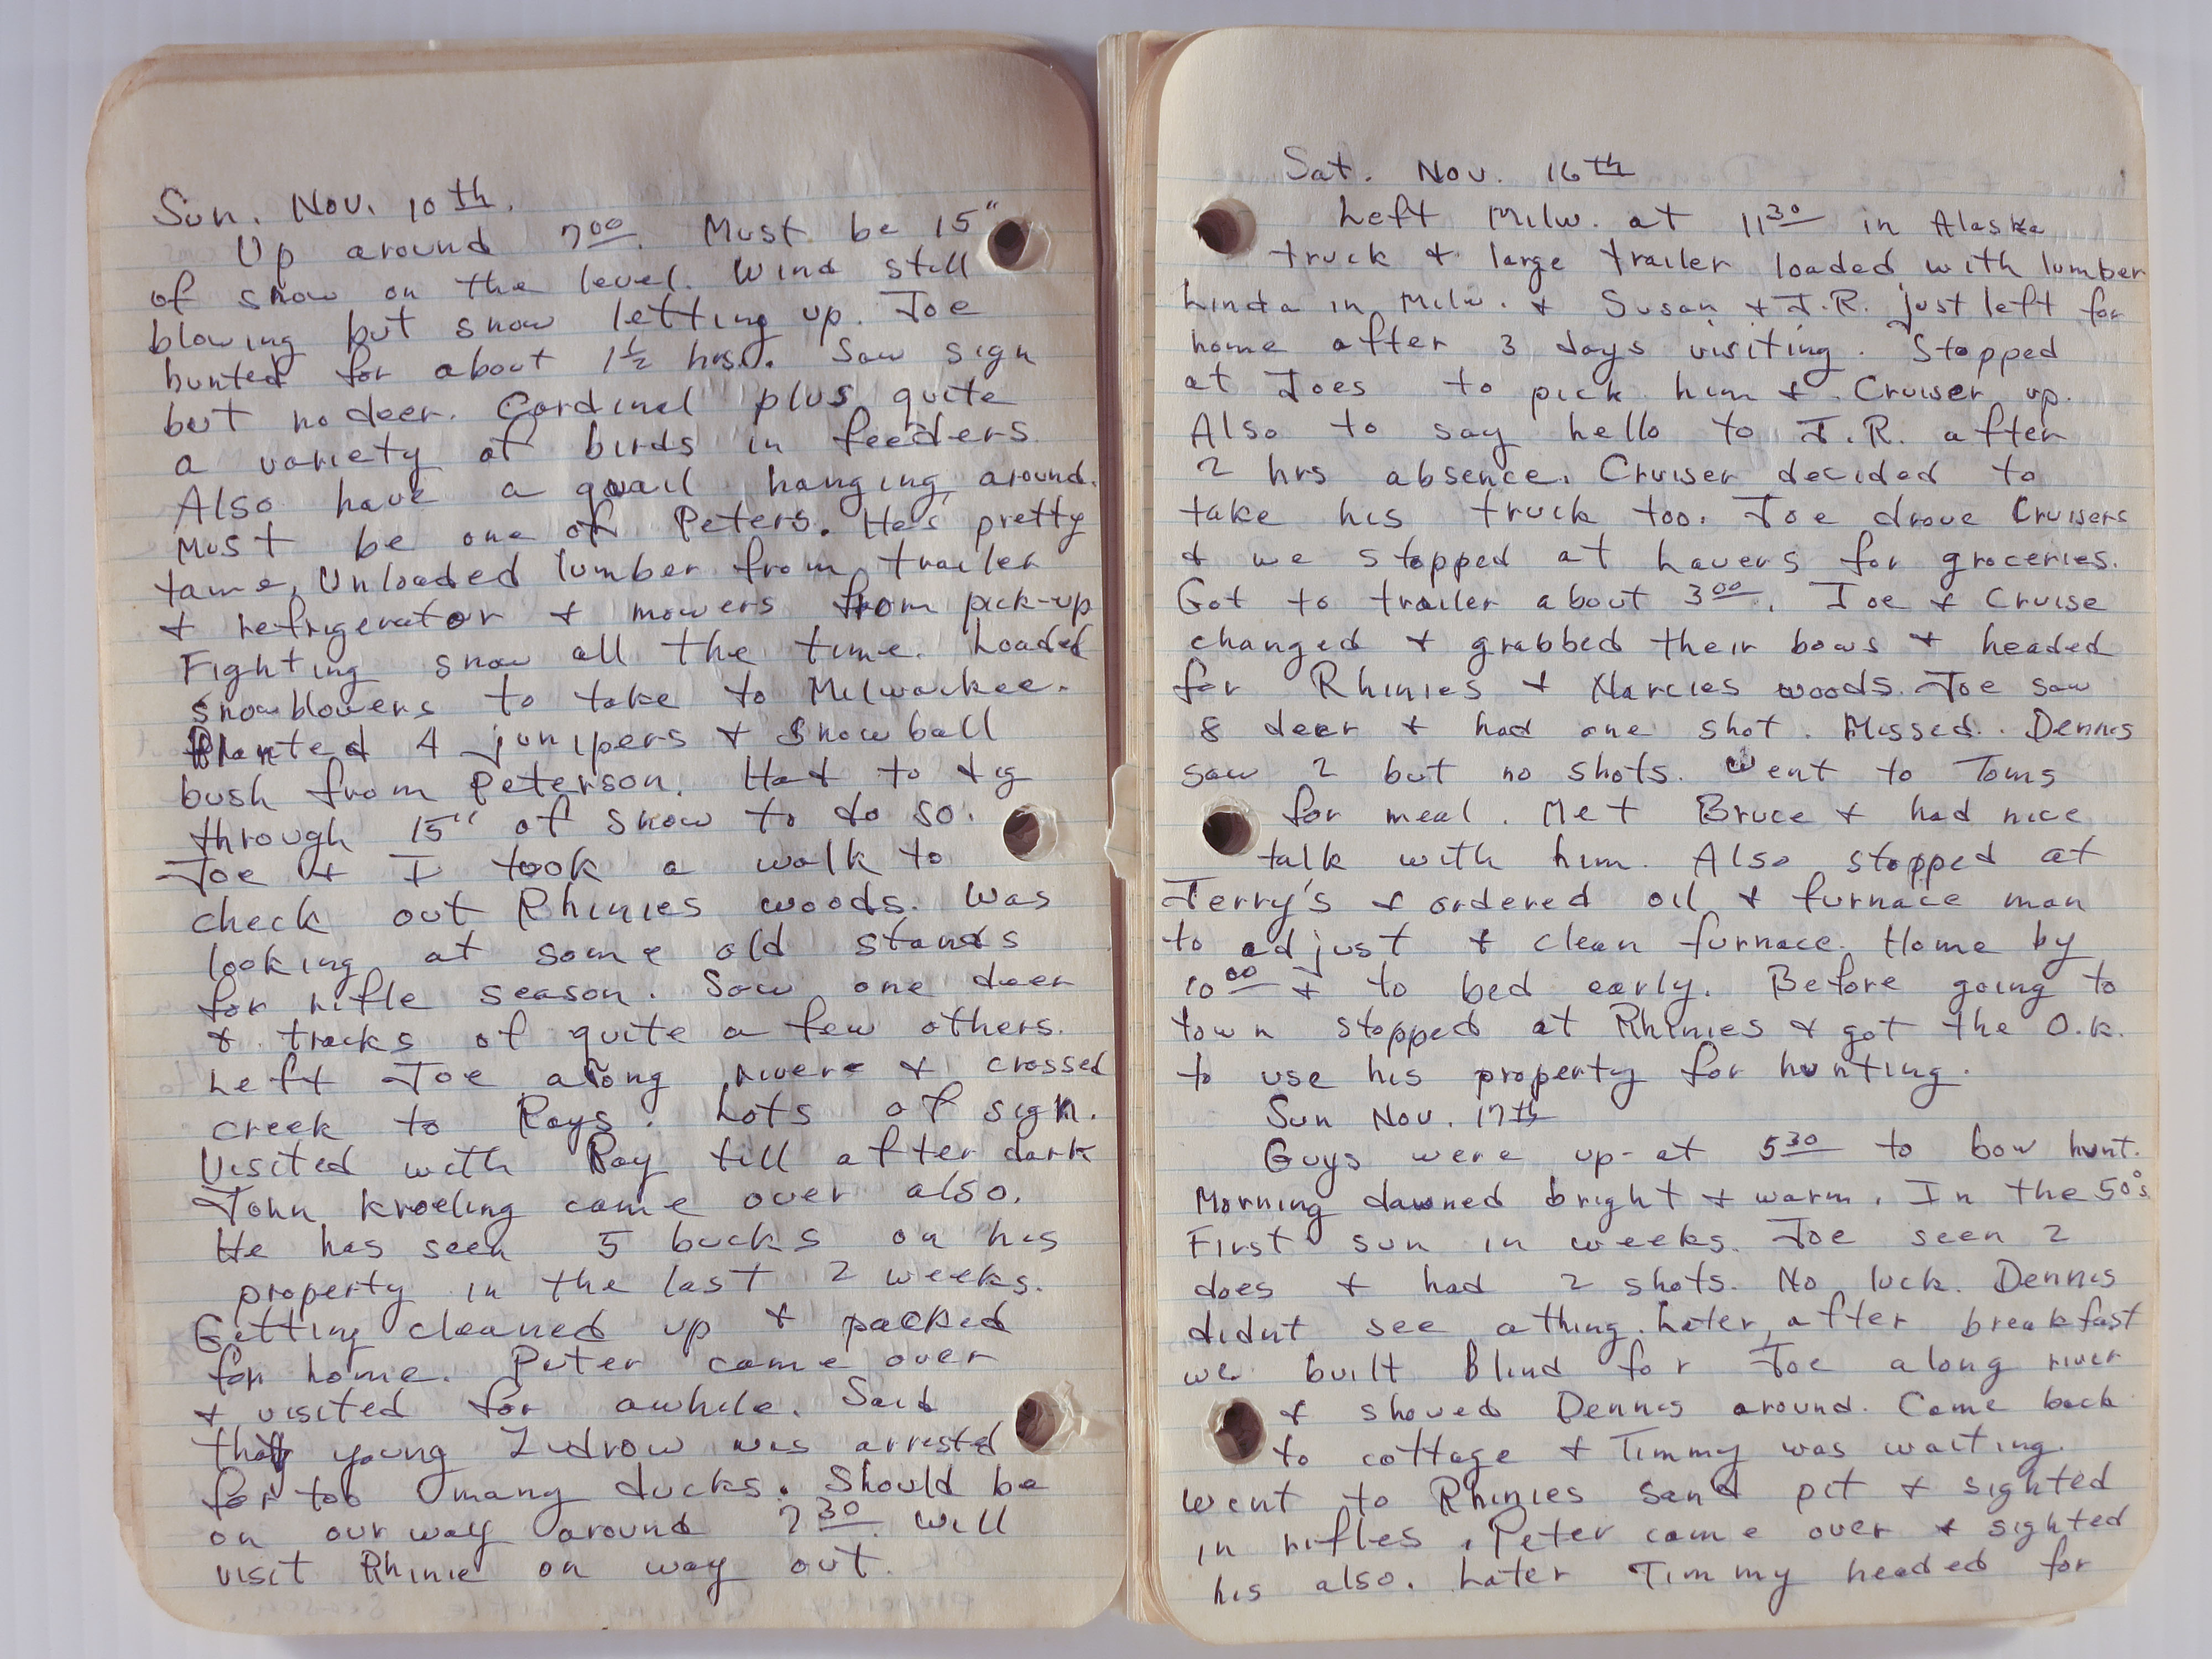 Sun. Nov. 10th.
Up around 7 00. Must be 15"
of snow on the level. Wind still
blowing but snow letting up. Joe
hunted for about 1½ hrs. Saw sign
but no deer. Cardinal plus quite
a variety of birds in feeders.
Also have a quail hanging around.
Must be one of Peters. He's pretty
tame. Unloaded lumber from trailer
& refrigerator & mowers from pick-up
Fighting snow all the time. Loaded
snowblowers to take to Milwaukee.
Planted 4 junipers & Snowball
bush from Peterson. Had to dig
through 15" of snow to do so.
Joe & I took a walk to
check out Rhinies woods. Was
looking at some old stands
for rifle season. Saw one deer
& tracks of quite a few others.
Left Joe along river & crossed
creek to Rays. Lots of sign.
Visited with Ray till after dark
John Kroeling came over also.
He has seen 5 bucks on his
property in the last 2 weeks.
Getting cleaned up & packed
for home. Peter came over
& visited for awhile. Said
that young Zudrow was arrested
for too many ducks. Should be
on our way around 7 30. Will
visit Rhinie on way out.
Sat. Nov. 16th
Left Milw. at 11 30 in Alaska
truck & large trailer loaded with lumber
Linda in Milw. & Susan & J.R. just left for
home after 3 days visiting. Stopped
at Joes to pick him & Cruiser up.
Also to say hello to J.R. after
2 hrs absence. Cruiser decided to
take his truck too. Joe drove Cruisers
& we stopped at Lavers for groceries.
Got to trailer about 3 00. Joe & Cruise
changed & grabbed their bows & headed
for Rhinies & Narcies woods. Joe saw
8 deer & had one shot. Missed. Dennis
saw 2 but no shots. Went to Toms
for meal. Met Bruce & had nice
talk with him. Also stopped at
Jerry's & ordered oil & furnace man
to adjust & clean furnace. Home by
10 00 & to bed early. Before going to
town stopped at Rhinies & got the O.K.
to use his property for hunting.
Sun Nov. 17th
Guys were up at 5 30 to bow hunt.
Morning dawned bright & warm. In the 50°s
First sun in weeks. Joe seen 2
does & had 2 shots. No luck. Dennis
didnt see a thing. Later, after breakfast
we built blind for Joe along river
& showed Dennis around. Came back
to cottage & Timmy was waiting.
Went to Rhinies sand pit & sighted
in rifles. Peter came over & sighted
his also. Later Timmy headed for